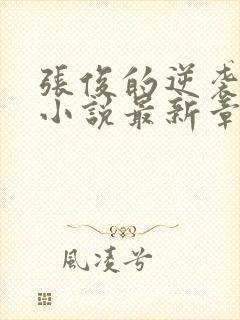 張俊的逆襲
小說最新章
風凌兮